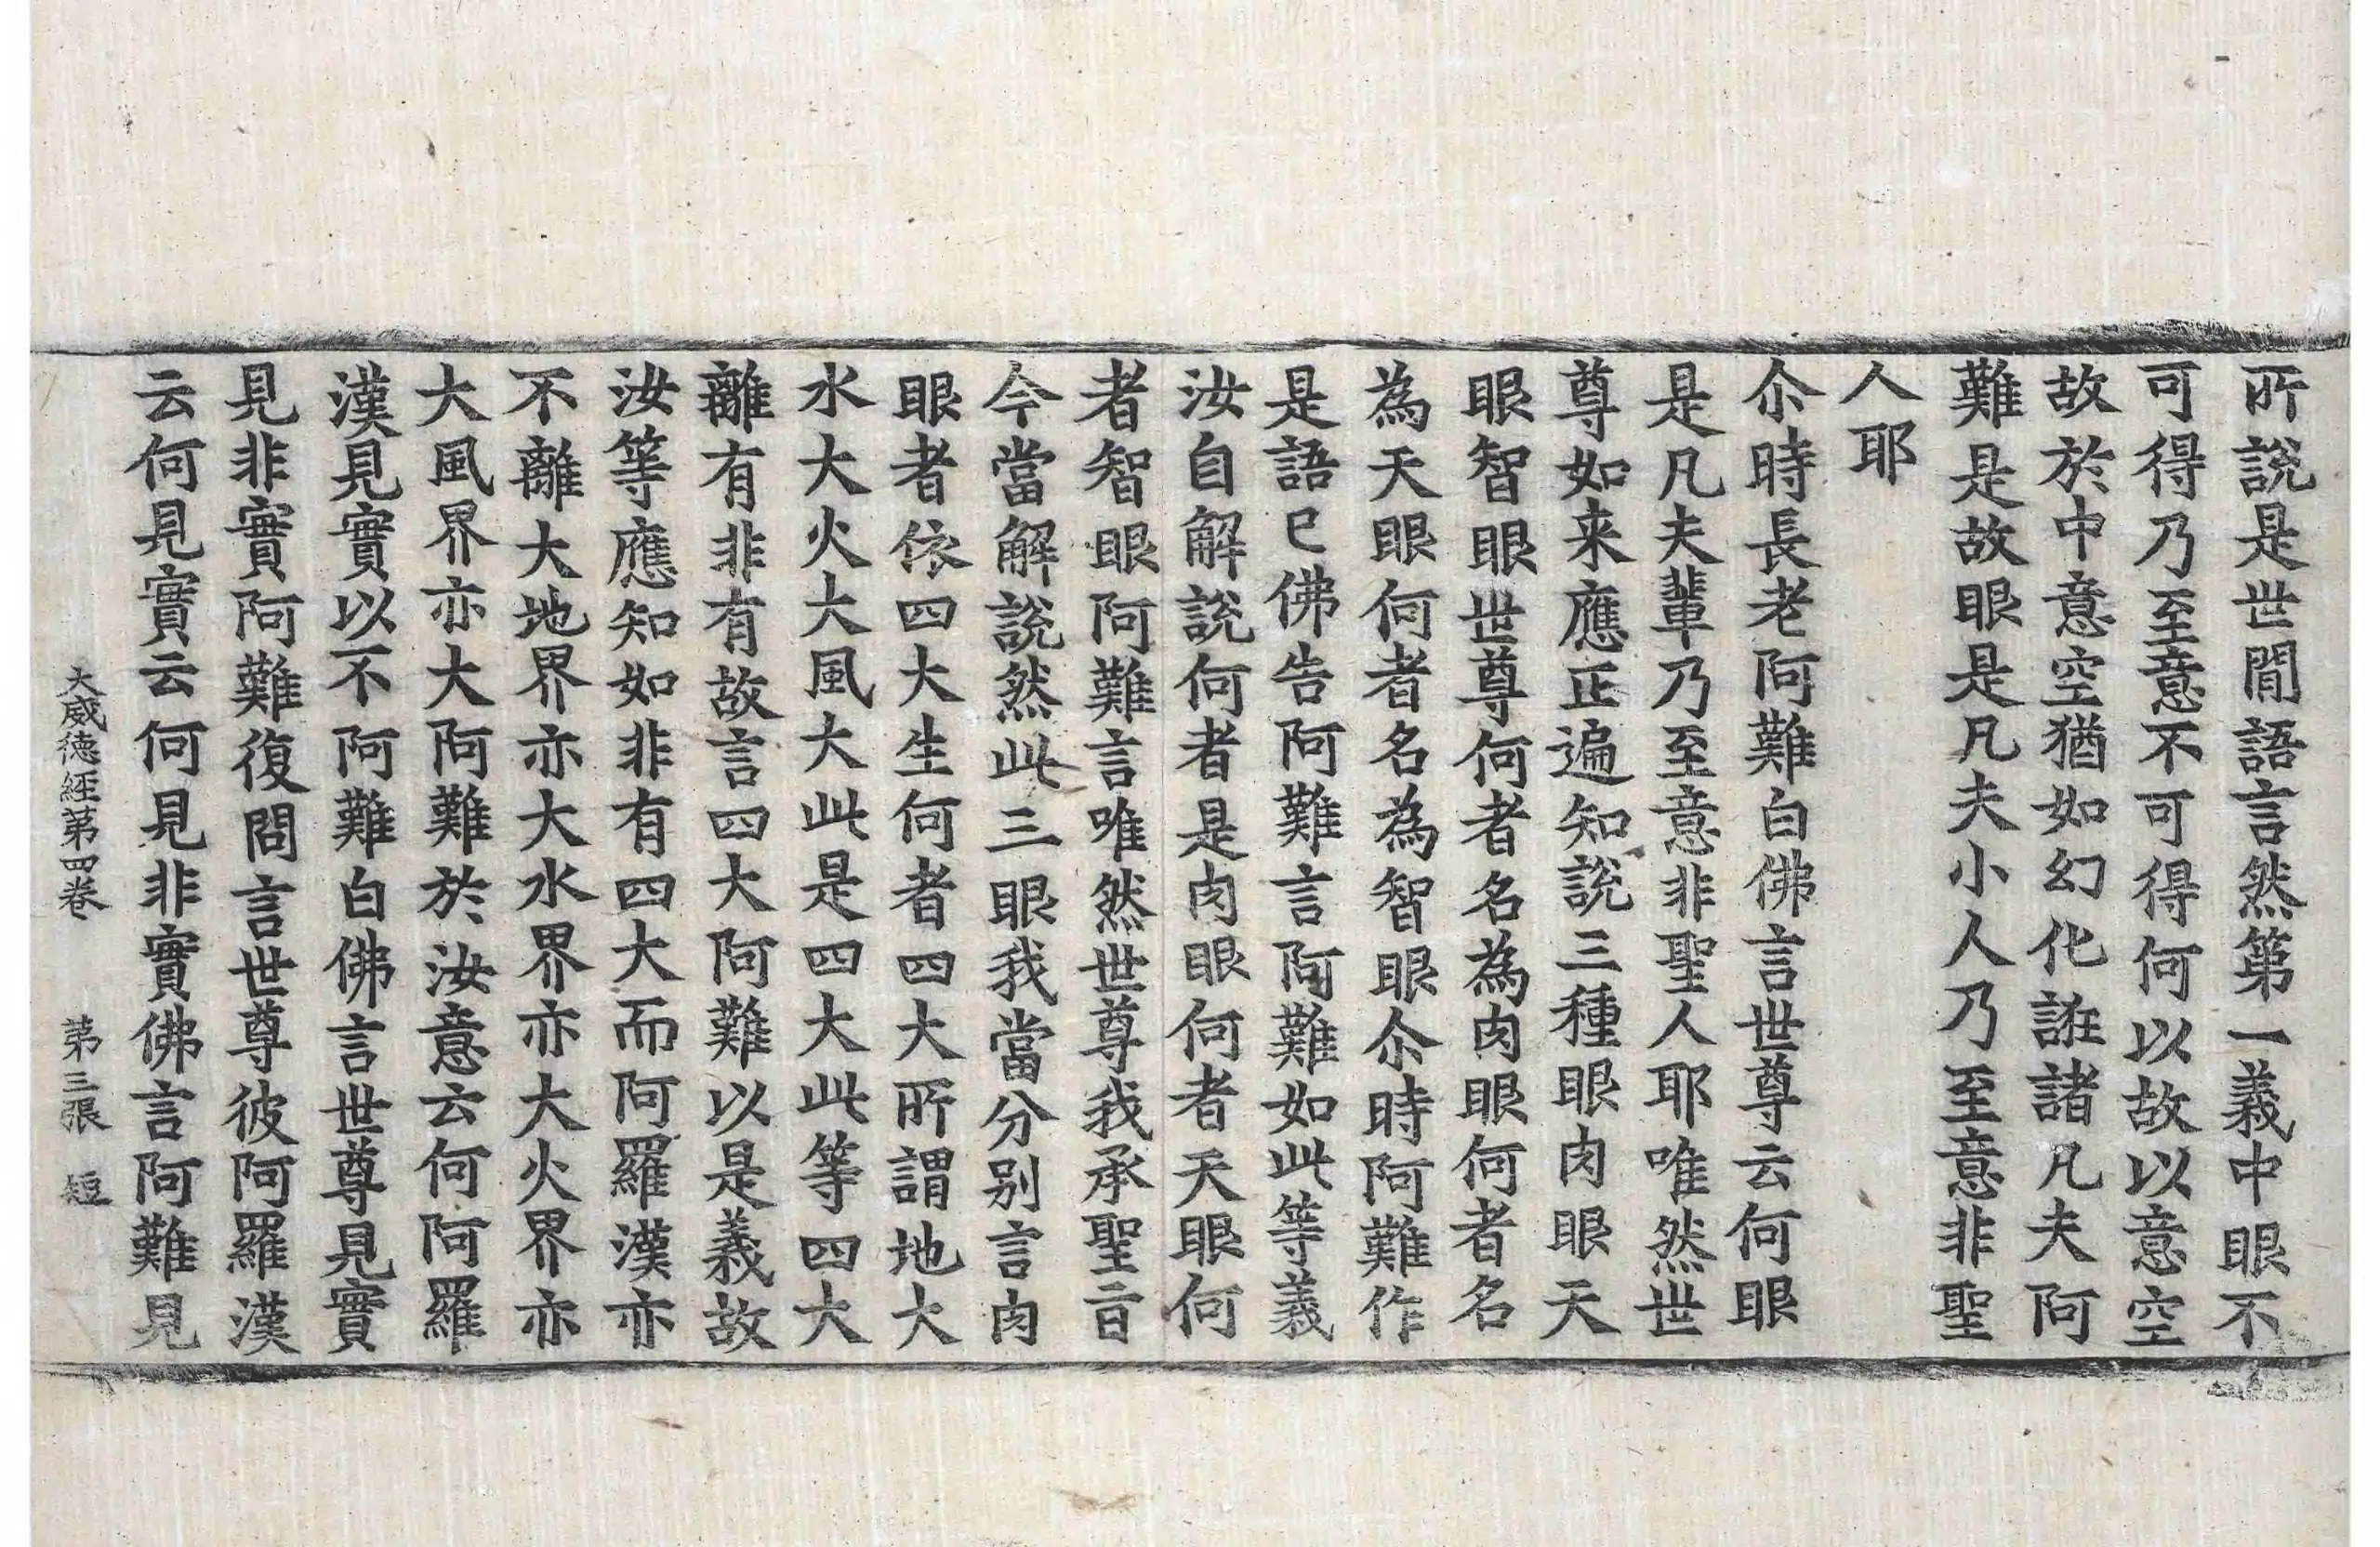 所說是世間語言然第一義中眼不
可得乃至意不可得何以故以意空
故於中意空猶如幻化誑諸凡夫阿
難是故眼是凡夫小人乃至意非聖
人耶
尒時長老阿難白佛言世尊云何眼
是凡夫輩乃至意非聖人耶唯然世
尊如来應正遍知說三種眼肉眼天
眼智眼世尊何者名為肉眼何者名
為天眼何者名為智眼尒時阿難作
是語已佛告阿難言阿難如此等義
汝自解說何者是肉眼何者天眼何
者智眼阿難言唯然世尊我承聖旨
今當解說然此三眼我當分別言肉
眼者依四大生何者四大所謂地大
水大火大風大此是四大此等四大
離有非有故言四大阿難以是義故
汝等應知如非有四大而阿羅漢亦
不離大地界亦大水界亦大火界亦
大風界亦大阿難於汝意云何阿羅
漢見實以不阿難白佛言世尊見實
見非實阿難復問言世尊彼阿羅漢
云何見實云何見非實佛言阿難見
大威徳經第四卷 第三張 短